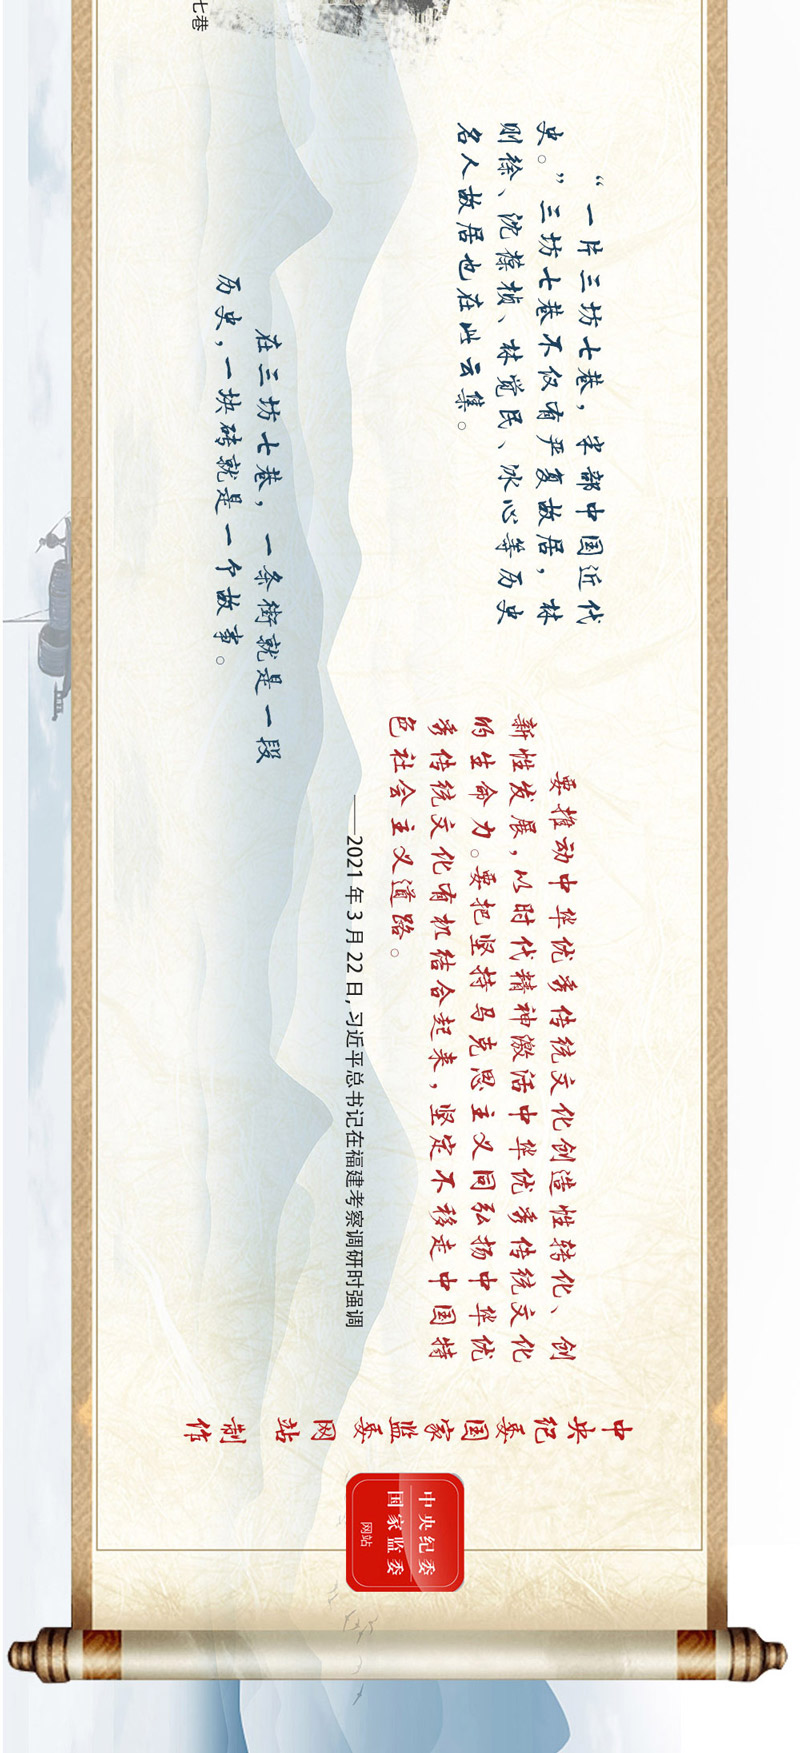 七巷
“一片三坊七巷，半部中国近代
史。”三坊七巷不仅有严复故居，林
则徐、沈葆桢、林觉民、冰心等历史
名人故居也在此云集。
在三坊七巷，一条街就是一段
历史，一块砖就是一个故事。
要推动中华优秀传统文化创造性转化、创
新性发展，以时代精神激活中华优秀传统文化
的生命力。要把坚持马克思主义同弘扬中华优
秀传统文化有机结合起来，坚定不移走中国特
色社会主义道路。
——2021年3月22日，习近平总书记在福建考察调研时强调
中央纪委国家监委网站 制作
中央纪委
国家监委
网站